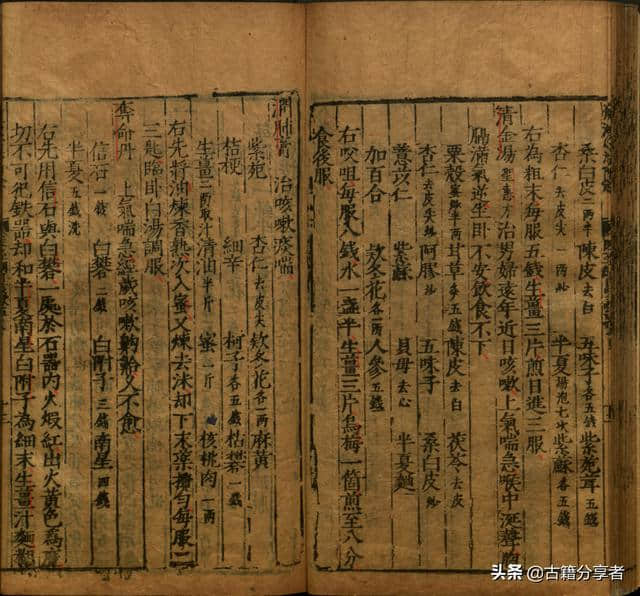 桑白皮二两半 陳皮去白 五味子各五錢 紫菀茸五錢
杏仁去皮尖 一两炒 半夏湯泡七次 紫蘇各五錢
右為粗末每服五錢生薑三片煎日進三服
清金湯 治男婦遠年近日咳嗽上氣喘急喉中涎聲胸
膈滿氣逆坐卧不安飲食不下
粟殼 半两 甘草各五錢 陳皮去白 茯苓去皮
杏仁去皮尖炒 阿膠炒 五味子 桑白皮炒
薏苡仁 紫蘇 貝母去心 半夏麯
加百合 欵冬花各一两 人參五錢
右㕮咀每服八錢水一盞半生薑三片烏梅一箇煎至八分
食後服
潤肺膏 治咳嗽痰喘
紫菀 杏仁去皮尖 欵冬花各一两 麻黄
桔梗 細辛 柯子各五錢 枯礬一錢
生薑二两取汁 清油半斤 蜜一斤 核桃肉一两
右先將油煉香熟次入蜜又煉去沫却下末藥攪勻每服二
三匙臨卧白湯調服
奪命丹 上氣喘急經歲咳嗽齁䶎久不愈
信石一錢 白礬二錢 白附子三錢 南星四錢
半夏五錢洗
右先用信石與白礬一處於石器内火煅紅出火黄色爲度
切不可犯鉄器却和半夏南星白附子為細末生薑汁麵糊
头条 @古籍分享者